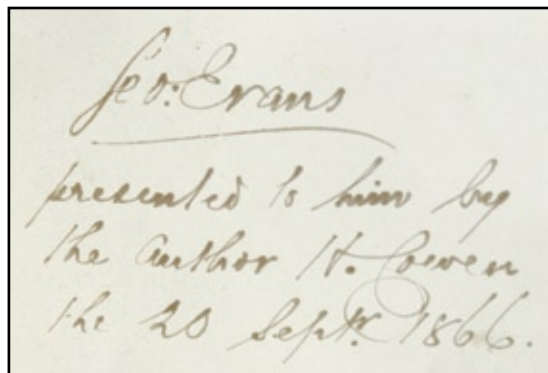 Geo: Evans
presented to him by
the Author H. Cowen
the 20 Septr. 1866.